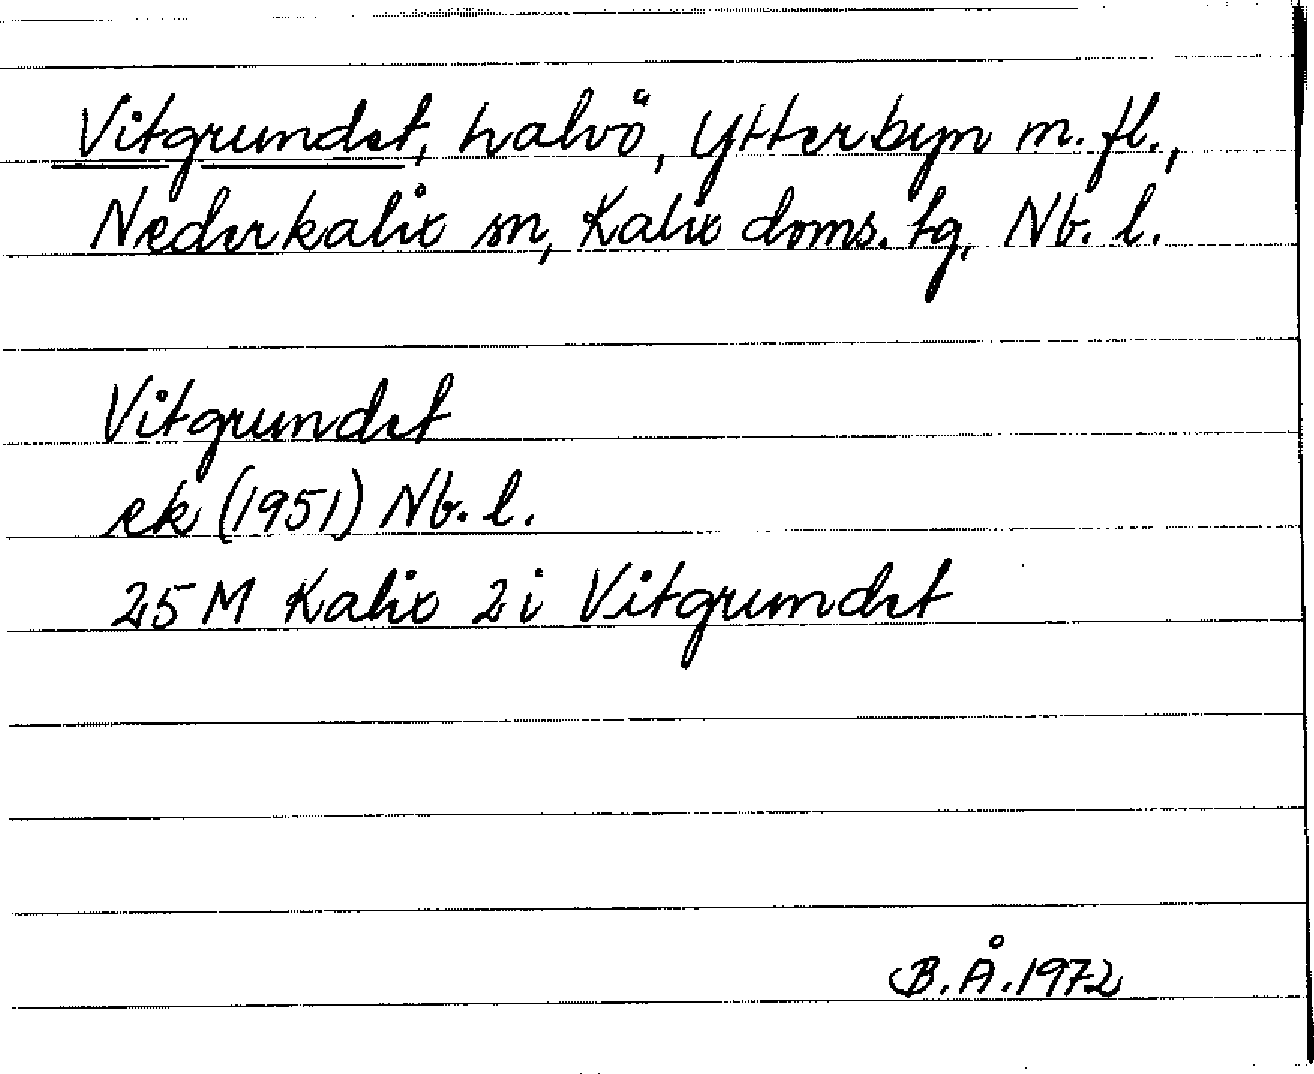 Vitgrundet, halvö, Ytterbyn m. fl.,
Nederkalix sn, Kalix doms. tg, Nb. l.
Vitgrundet
ek (1951) Nb. l.
25 M Kalix 2 i Vitgrundet
B. Å. 1972